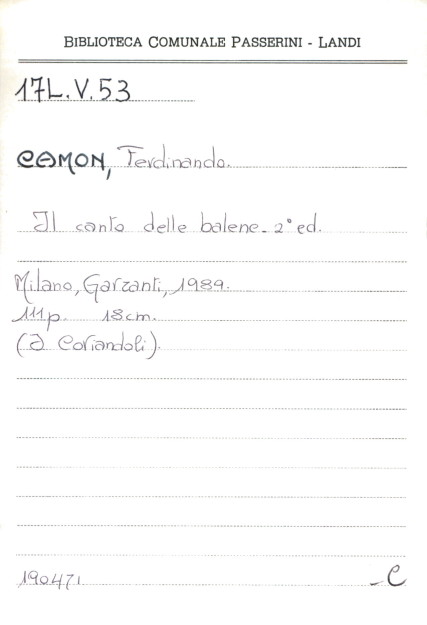 BIBLIOTECA COMUNALE PASSERINI - LANDI
17L.V.53
CAMON, Ferdinando.
Il canto delle balene. 2° ed.
Milano, Garzanti, 1989.
111p. 18cm.
(I Coriandoli).
190471 C